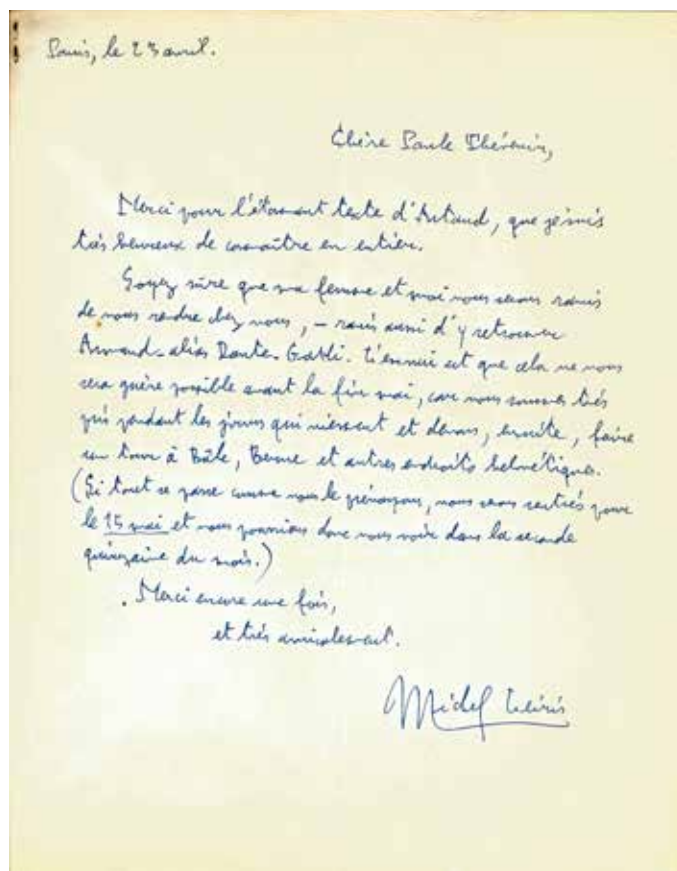 Paris, le 23 avril.
Chère Paule Thévenin,
Merci pour l'étonnant texte d'Artaud, que je suis
très heureux de connaître en entier.
Soyez sûre que ma femme et moi nous serons ravis
de nous rendre chez vous, – ravis aussi d'y retrouver
Armand-alias Dante-Gatti. L'ennui est que cela ne nous
sera guère possible avant la fin mai, car nous sommes très
pris pendant les jours qui viennent et devons, ensuite, faire
un tour à Bâle, Berne et autres endroits helvétiques.
(Si tout se passe comme nous le prévoyons, nous serons rentrés pour
le 15 mai et nous pourrions donc nous voir dans la seconde
quinzaine du mois.)
Merci encore une fois,
et très amicalement.
Michel Leiris